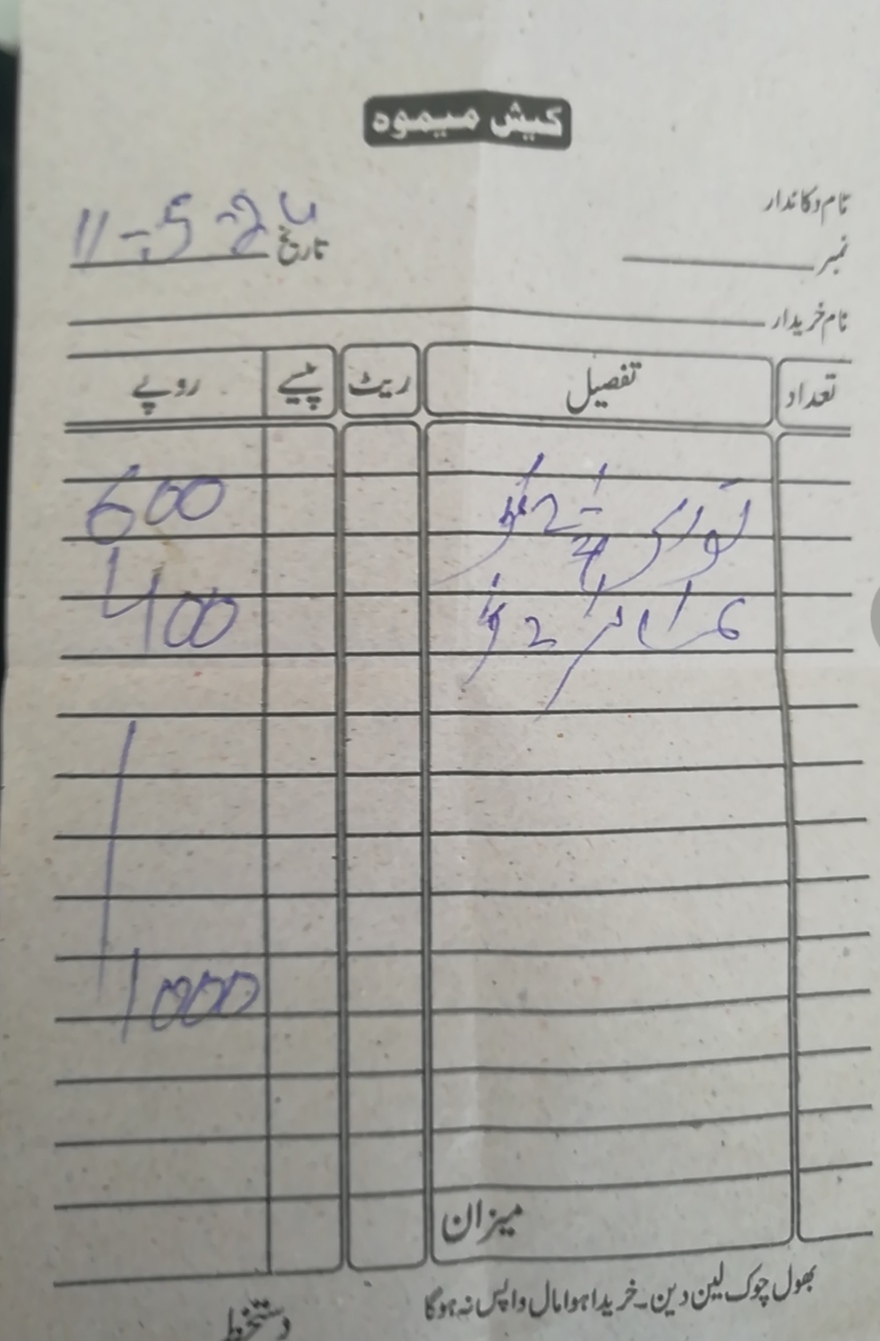 کیش میموہ
نام دکاندار
نمبر
تاریخ 11-5-24
نام خریدار
تعداد تفصیل ریٹ پیسے روپے
2 1/4 600
2 400
1000
میزان
بھول چوک لین دین۔ خریدا ہوا مال واپس نہ ہوگا
دستخط